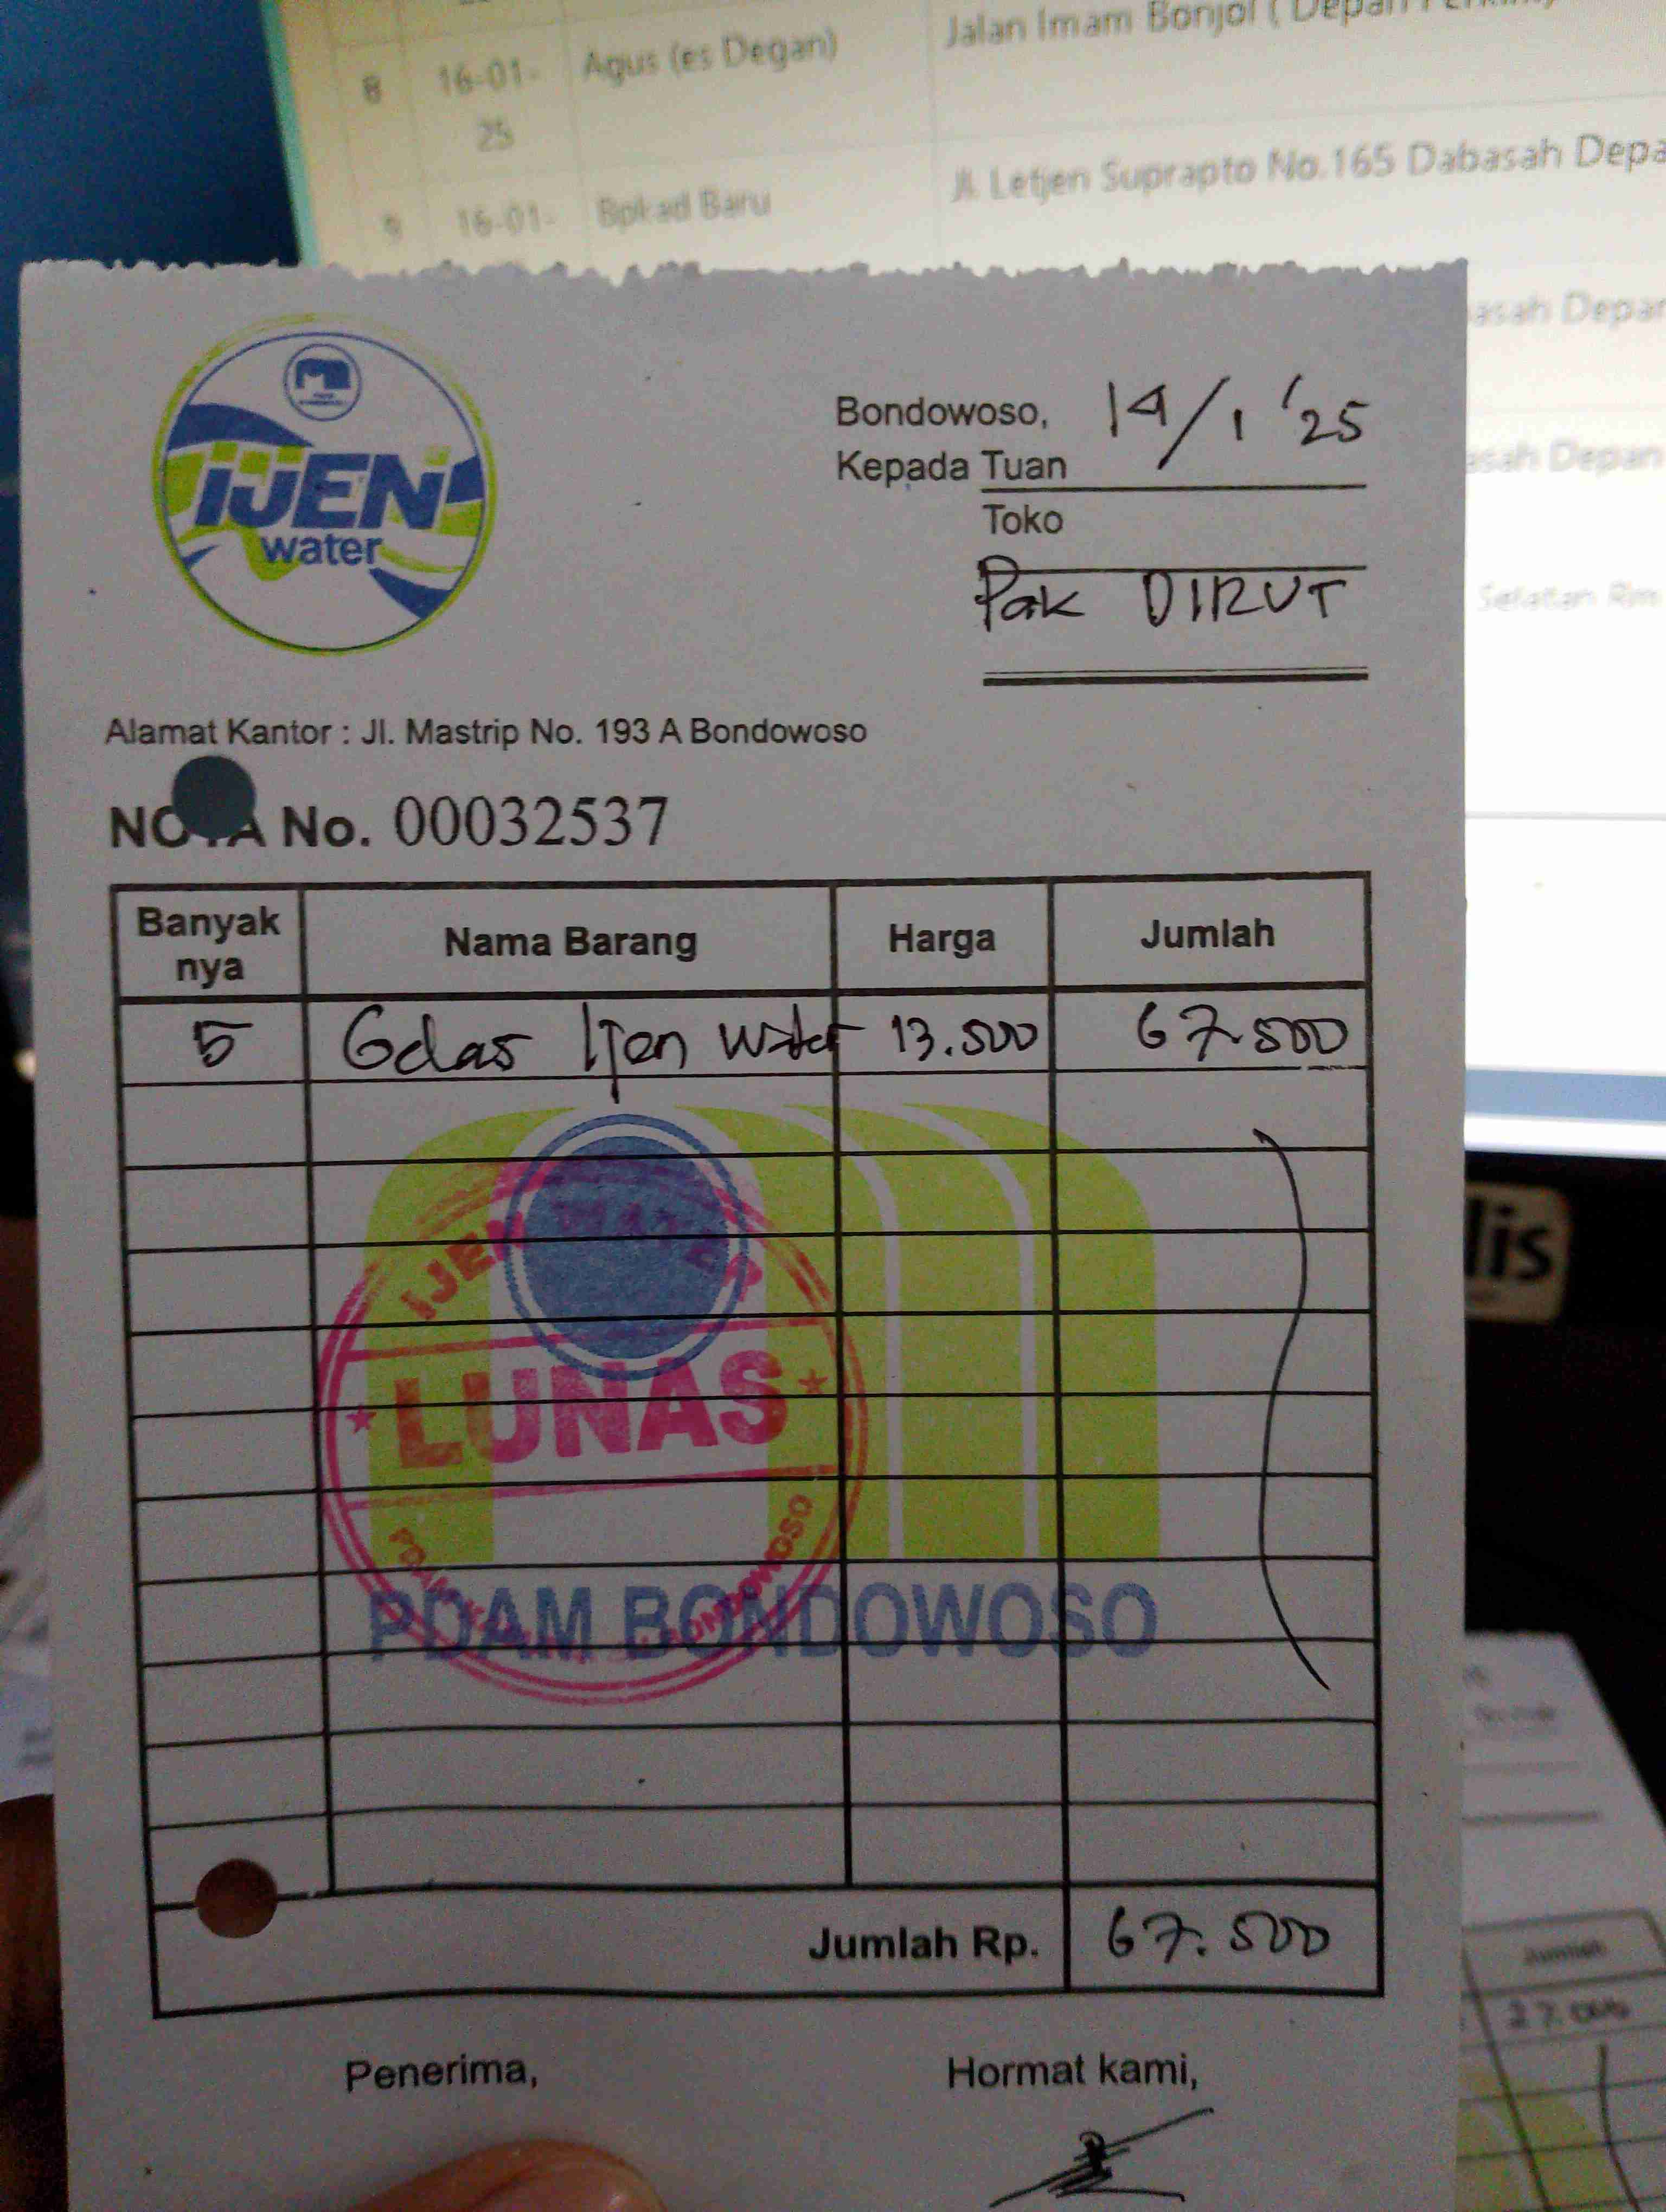 8 16-01-25 Agus (es Degan) Jalan Imam Bonjol ( Depan
9 16-01- Bpkad Baru Jl. Letjen Suprapto No.165 Dabasah Depa
asah Depan
asah Depan
Selatan Rm
IJEN
water
Bondowoso, 14/1 '25
Kepada Tuan
Toko
Pak DIRUT
Alamat Kantor : Jl. Mastrip No. 193 A Bondowoso
NOTA No. 00032537
Banyak nya Nama Barang Harga Jumlah
5 Gelas Ijen Water 13.500 67.500
IJEN WATER
LUNAS
PDAM BONDOWOSO
PDAM BONDOWOSO
lis
Jumlah Rp. 67.500
Jumlah
27.000
Penerima, Hormat kami,